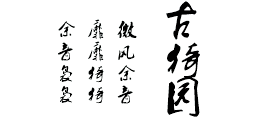 古猗园
微风余音
靡靡猗猗
余音袅袅